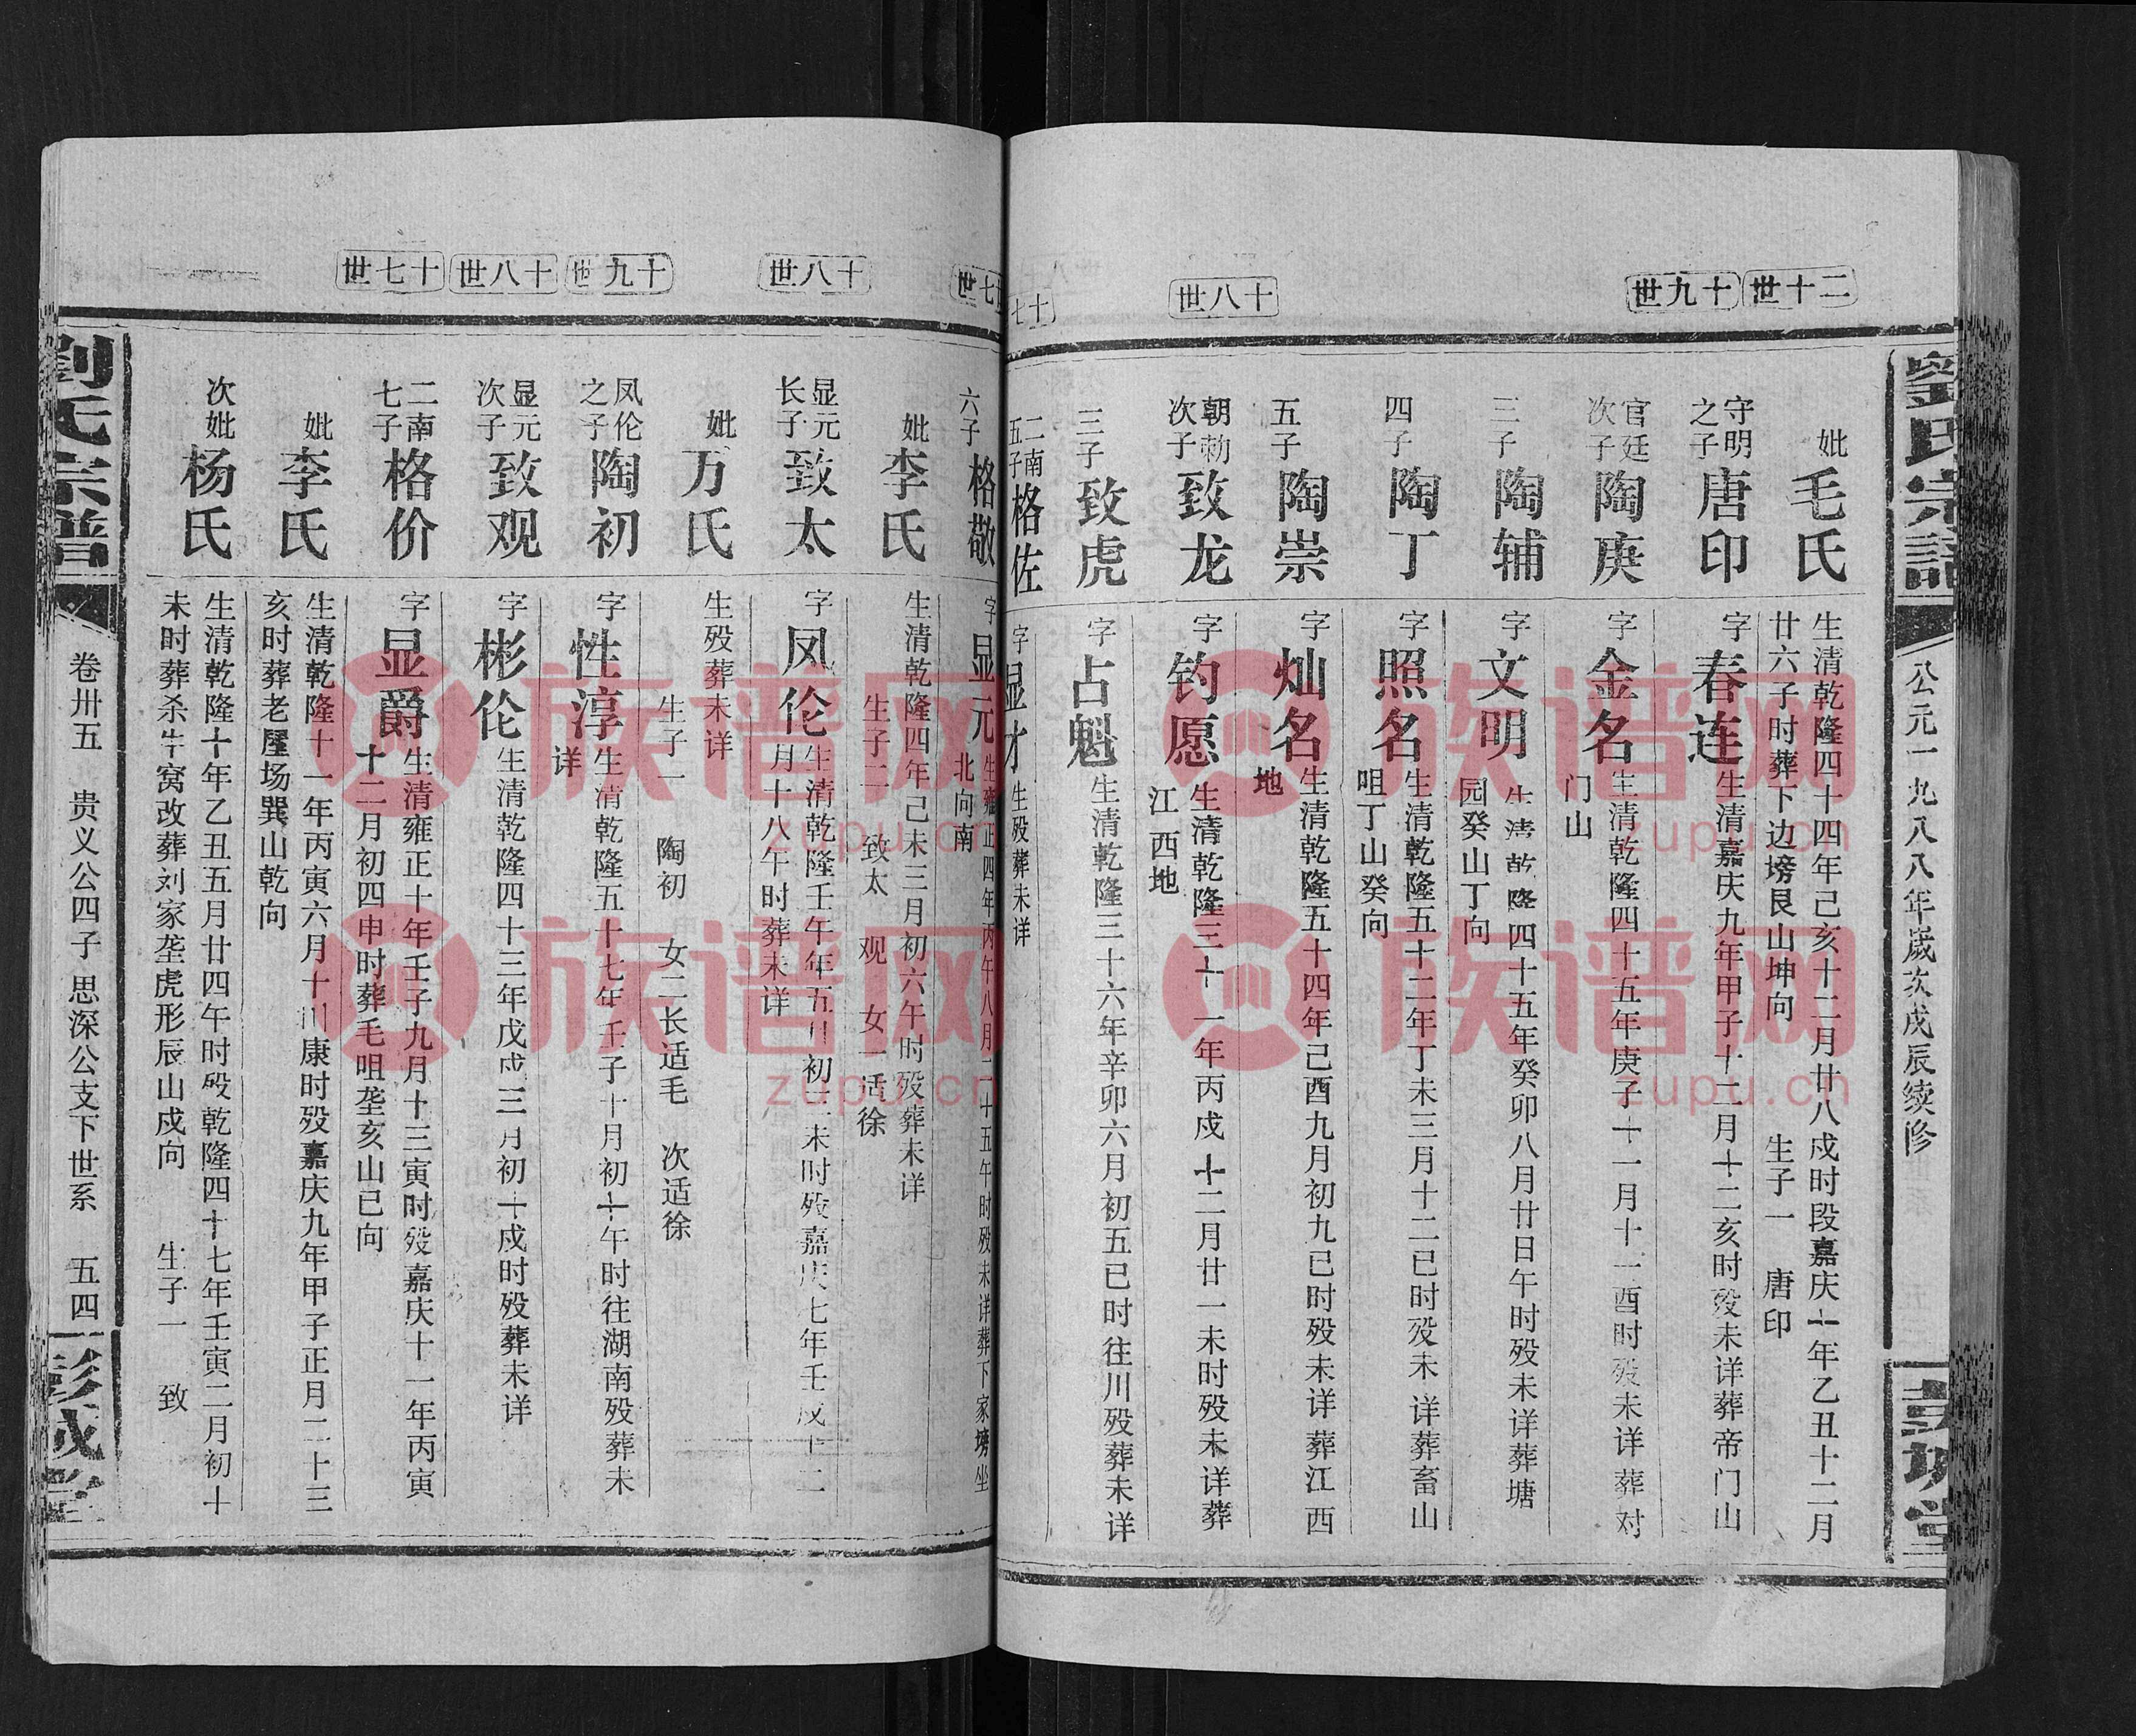 劉氏宗譜
公元一九八八年歲次戊辰续修
彭城堂
二十世
十九世
十八世
十七
妣
毛氏
生清乾隆四十四年己亥十二月廿八戍时段嘉庆十年乙丑十二月
廿六子时葬下边塝艮山坤向 生子一 唐印
守明
之子
唐印
字春连
生清嘉庆九年甲子十二月十二亥时殁未详葬帝门山
官廷
次子
陶庚
字金名
生清乾隆四十五年庚子十一月十一酉时殁未详葬对
门山
三子
陶辅
字文明
生清乾隆四十五年癸卯八月廿日午时殁未详葬塘
园癸山丁向
四子
陶丁
字照名
生清乾隆五十二年丁未三月十二巳时殁未详葬畜山
咀丁山癸向
五子
陶崇
字灿名
生清乾隆五十四年己酉九月初九巳时殁未详葬江西
地
朝勅
次子
致龙
字钓愿
生清乾隆三十一年丙戍十二月廿一未时殁未详葬
江西地
三子
致虎
字占魁
生清乾隆三十六年辛卯六月初五巳时往川殁葬未详
二南
五子
格佐
字显才
生殁葬未详
世七
十八世
十九世
十八世
十七世
六子
格敬
字显元
生雍正四年丙午八月二十五午时殁未详葬下家塝坐
北向南
妣
李氏
生清乾隆四年己未三月初六午时殁葬未详
生子二 致太 观 女一适徐
显元
长子
致太
字凤伦
生清乾隆壬午年五月初三未时殁嘉庆七年壬戍十二
月十八午时葬未详
妣
万氏
生殁葬未详
生子一 陶初 女二长适毛 次适徐
凤伦
之子
陶初
字性淳
生清乾隆五十七年壬子十月初十午时往湖南殁葬未
详
显元
次子
致观
字彬伦
生清乾隆四十三年戊戍三月初十戍时殁葬未详
二南
七子
格价
字显爵
生清雍正十年壬子九月十三寅时殁嘉庆十一年丙寅
十二月初四申时葬毛咀垄亥山巳向
妣
李氏
生清乾隆十一年丙寅六月十川康时殁嘉庆九年甲子正月二十三
亥时葬老屋场巽山乾向
次妣
杨氏
生清乾隆十年乙丑五月廿四午时殁乾隆四十七年壬寅二月初十
未时葬杀牛窝改葬刘家垄虎形辰山戍向 生子一 致
劉氏宗譜
卷卅五 贵义公四子思深公支下世系 五四
彭城堂
族谱网
zupu.cn
族谱网
zupu.cn
族谱网
zupu.cn
族谱网
zupu.cn